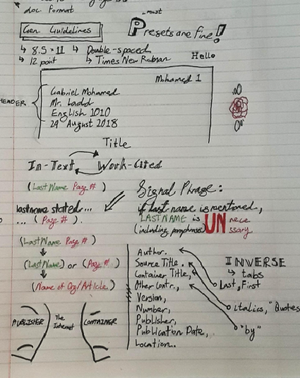 doc format
must
Gen Guidelines
Presets are fine!
↳ 8.5 × 11 ↳ Double-spaced
↳ 12 point ↳ Times New Roman
Hello
Mohamed 1
HEADER
Gabriel Mohamed
Mr. Ladd
English 1010
29 August 2018
Title
In-Text Work-Cited
(Last Name Page #)
Signal Phrase:
last name stated...
... (Page #).
if last name is mentioned,
LAST NAME is UNnece
(including paraphrase) ssary
(Last Name Page #)
(Last Name) or (Page #)
(Name of Org/Article)
Author.
Source Title.
Container Title,
Other Contr.,
Version,
Number,
Publisher,
Publication Date,
Location.
INVERSE
↳ tabs
Last, First
Italics, "Quotes
"by"
PUBLISHER
The Internet
CONTAINER